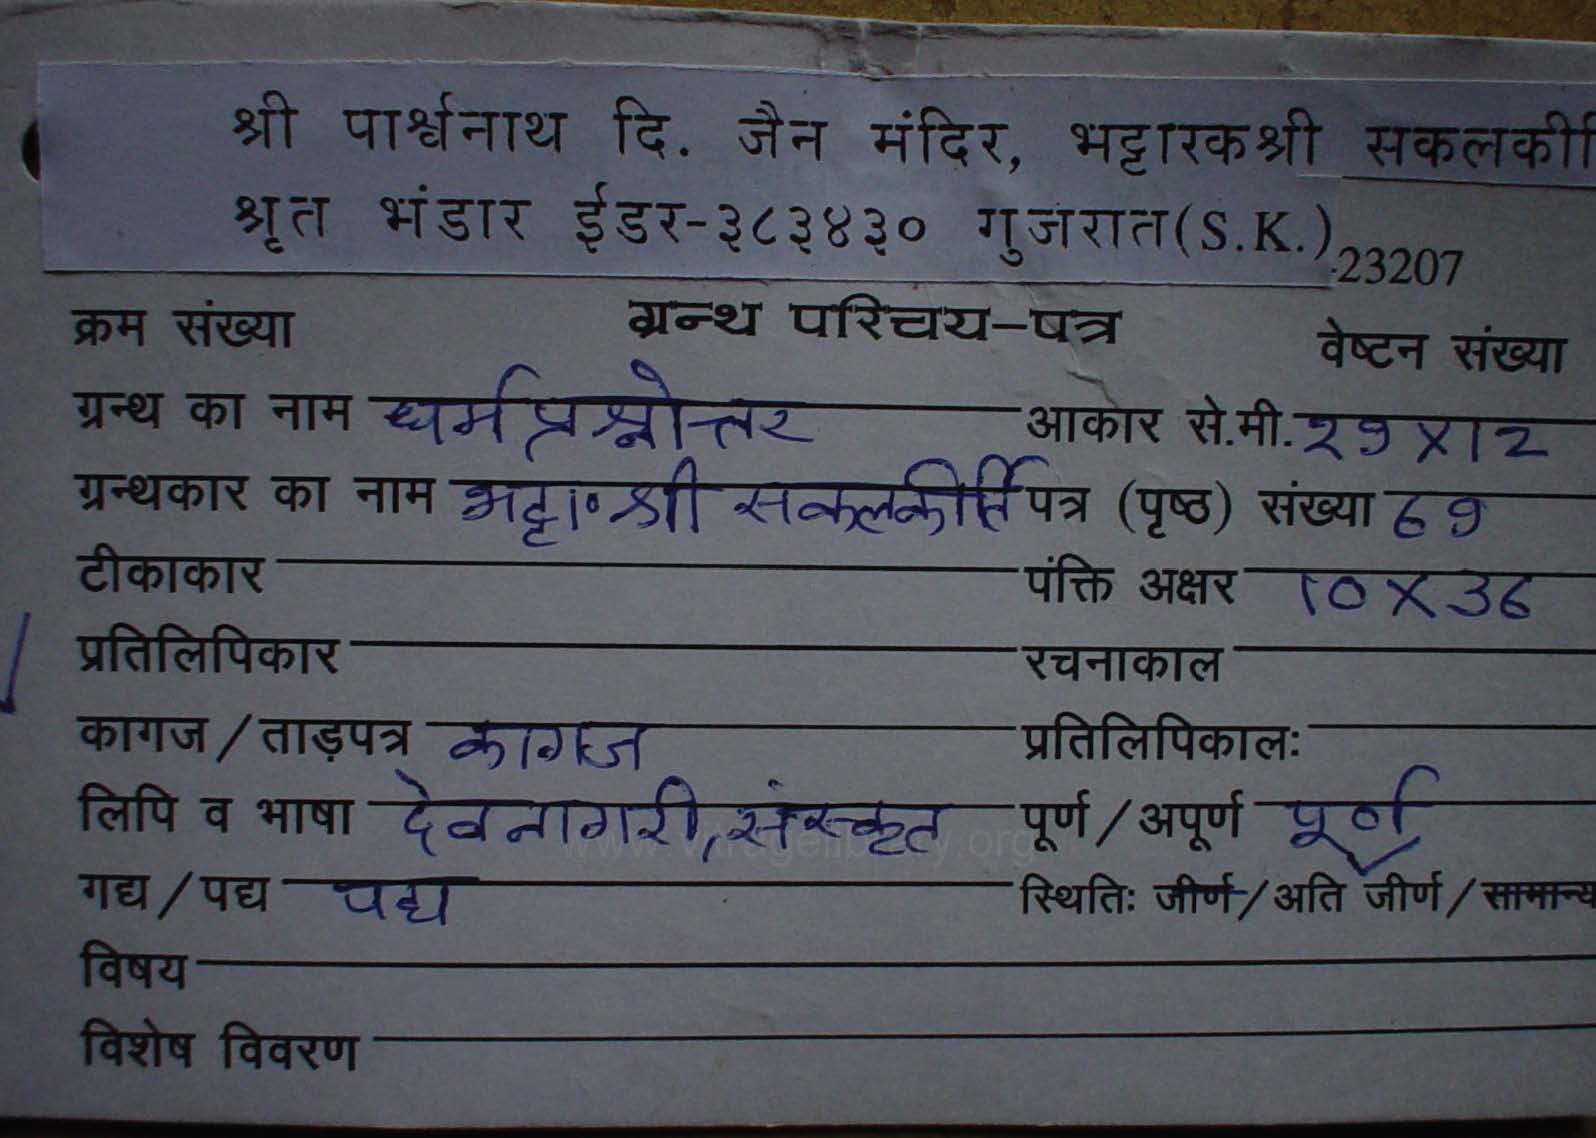 श्री पार्श्वनाथ दि. जैन मंदिर, भट्टारकश्री सकलकीर्ति
श्रृत भंडार ईडर-३८३४३० गुजरात(S.K.)
23207
क्रम संख्या ग्रन्थ परिचय-पत्र वेष्टन संख्या
ग्रन्थ का नाम धर्मप्रश्नोत्तर आकार से.मी. 29 X 12
ग्रन्थकार का नाम भट्टा॰ श्री सकलकीर्ति पत्र (पृष्ठ) संख्या 69
टीकाकार पंक्ति अक्षर 10 X 36
प्रतिलिपिकार रचनाकाल
कागज / ताड़पत्र कागज प्रतिलिपिकालः
लिपि व भाषा देवनागरी, संस्कृत पूर्ण / अपूर्ण पूर्ण
गद्य / पद्य पद्य स्थितिः जीर्ण / अति जीर्ण / सामान्य
विषय
विशेष विवरण
www.vitragelibrary.org